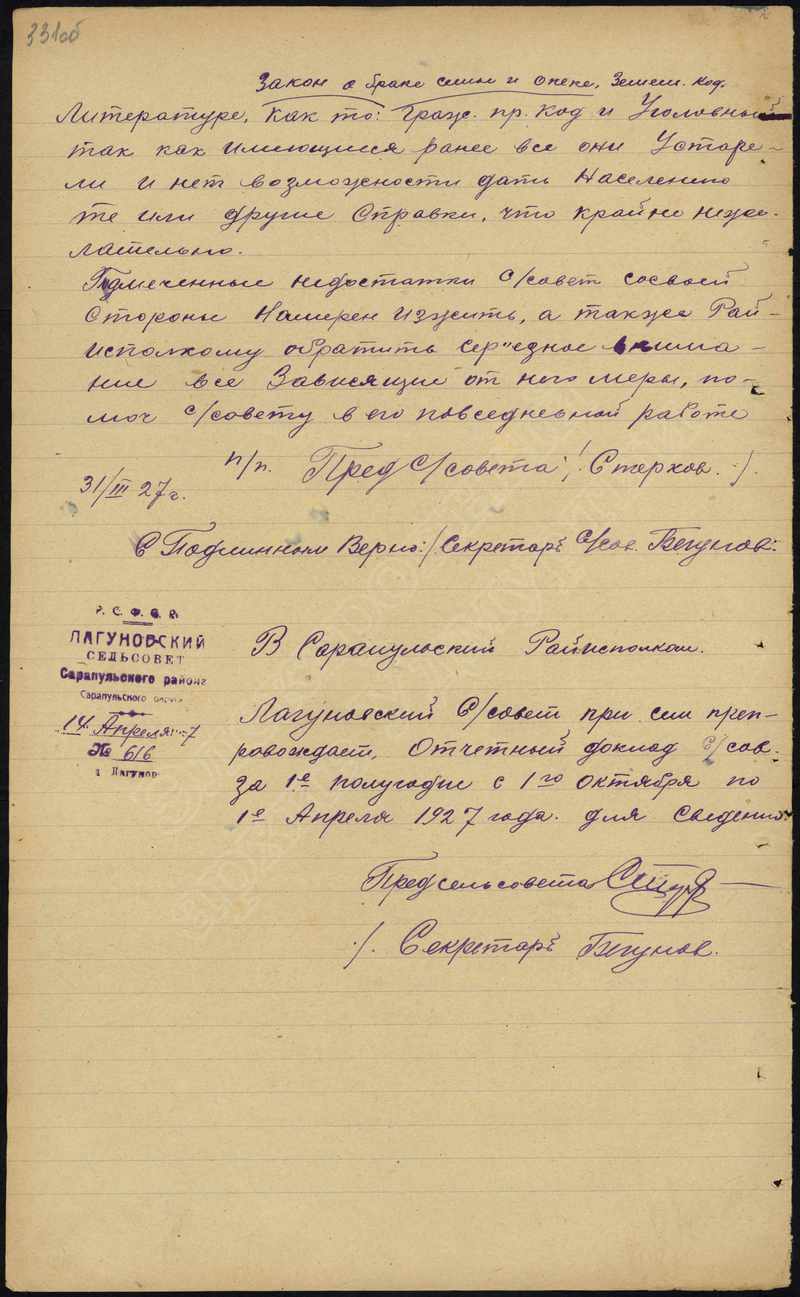 331об
Закон о браке семье и опеке, Земел. Код.
Литературе, как то: Гражд. пр. Код и Уголовный
так как имеющиеся ранее все они Устаре-
ли и нет возможности дать Населению
те или другие Справки, что крайне неже-
лательно.
Подмеченные недостатки с/совет со своей
Стороны Намерен Изжить, а также Рай-
исполкому обратить серъедное внима-
ние все Зависящие от него меры, по-
моч с/совету в его повседневной работе
п/п. Пред С/совета /Стерхов./.
31/III 27 г.
С Подлинным Верно:/Секретарь с/сов. Бегунов:
Р. С. Ф. С. Р.
ЛАГУНОВСКИЙ
СЕЛЬСОВЕТ
Сарапульского района
Сарапульского округа
14 Апреля 7
№ 616
Лагунов
В Сарапульский Райисполком.
Лагуновский С/совет при сем преп-
ровождает, Отчетный доклад с/сов.
за 1е полугодие с 1го октября по
1е Апреля 1927 года. для сведения.
Предсельсовета
/. Секретарь Бегунов.